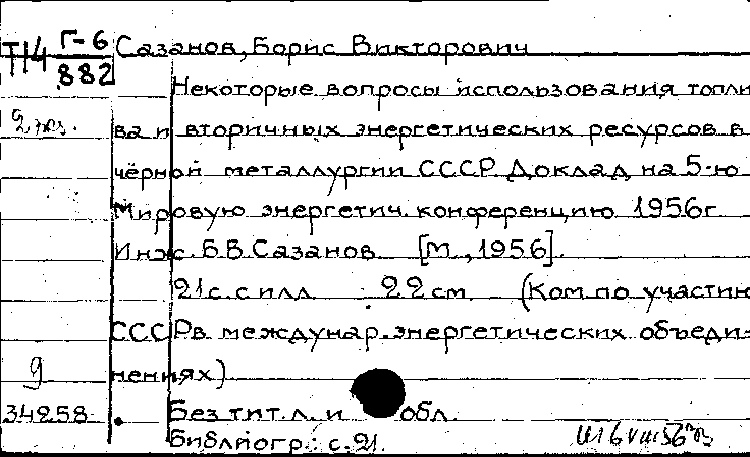 Т14 Г-6 Сазанов, Борис Викторович
882
Некоторые вопросы использования топли
2 экз. ва и вторичных энергетических ресурсов в
чёрной металлургии СССР. Доклад на 5-ю
Мировую энергетич. конференцию 1956г
Инж. Б.В. Сазанов [М., 1956].
21 с. с илл. 22 см. (Ком. по участию
СССР в междунар. энергетических объеди-
9 нениях)
34258 Без тит. л. и обл.
Библиогр.: с. 21.